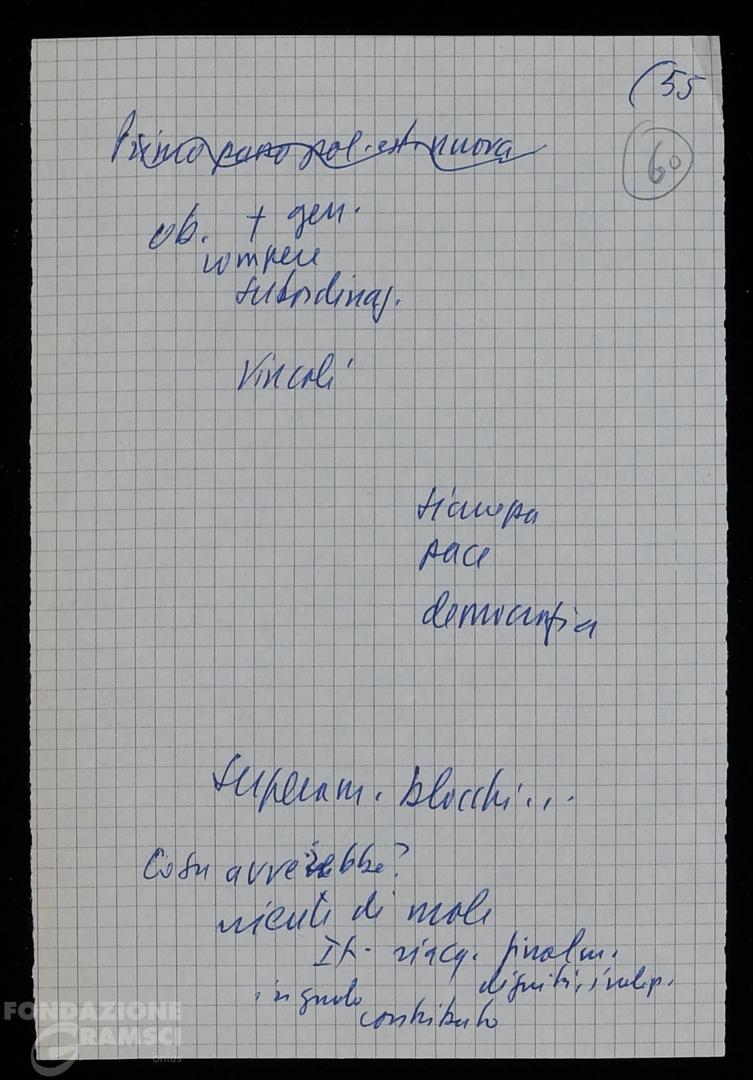 (55
60
Primo passo pol. est. nuova
ob. + gen.
rompere
subordinaz.
Vincoli
stampa
pace
democrazia
Superam. blocchi...
Cosa avverrebbe?
niente di male
It. riacq. finalm.
dignità, indip.
in grado
contributo
FONDAZIONE
GRAMSCI
onlus